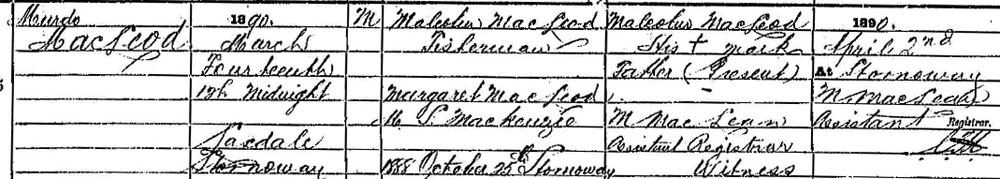 Murdo
MacLeod
1890.
March
Fourteenth
12h Midnight
Laxdale
Stornoway
M
Malcolm MacLeod
Fisherman
Margaret MacLeod
M.S. Mackenzie
1888 October 25th Stornoway
Malcolm MacLeod
His + mark
Father (Present)
M MacLean
Assistant Registrar
Witness
1890.
April 2nd
At Stornoway
M MacLean
Assistant Registrar.